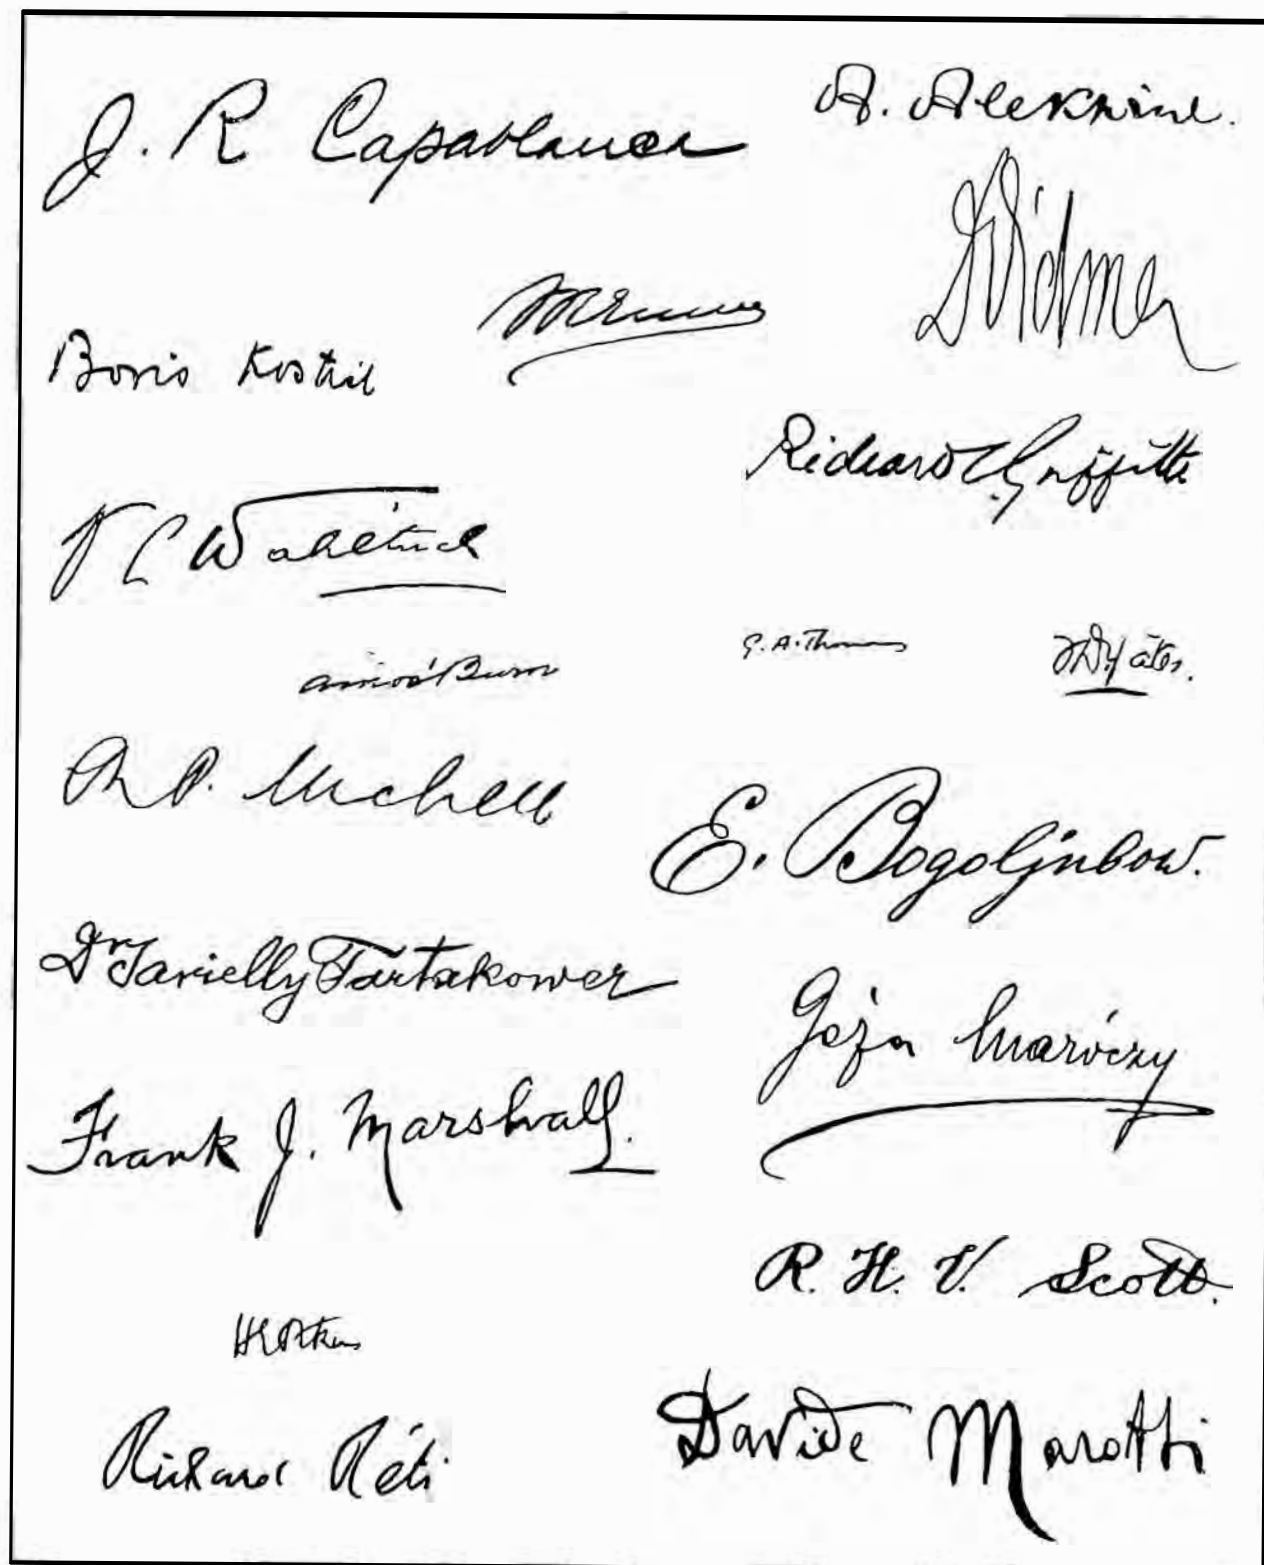 J. R Capablanca
A. Alekhine.
Vidmar
M Euwe
Boris Kostić
Richard C. Griffith
V L Wahltuch
Amos Burn
G. A. Thomas
F.D. Yates.
R P. Michell
E. Bogoljubow.
Dr Savielly Tartakower
Géza Maróczy
Frank J. Marshall.
R. H. V. Scott.
H E Atkins
Richard Réti
Davide Marotti